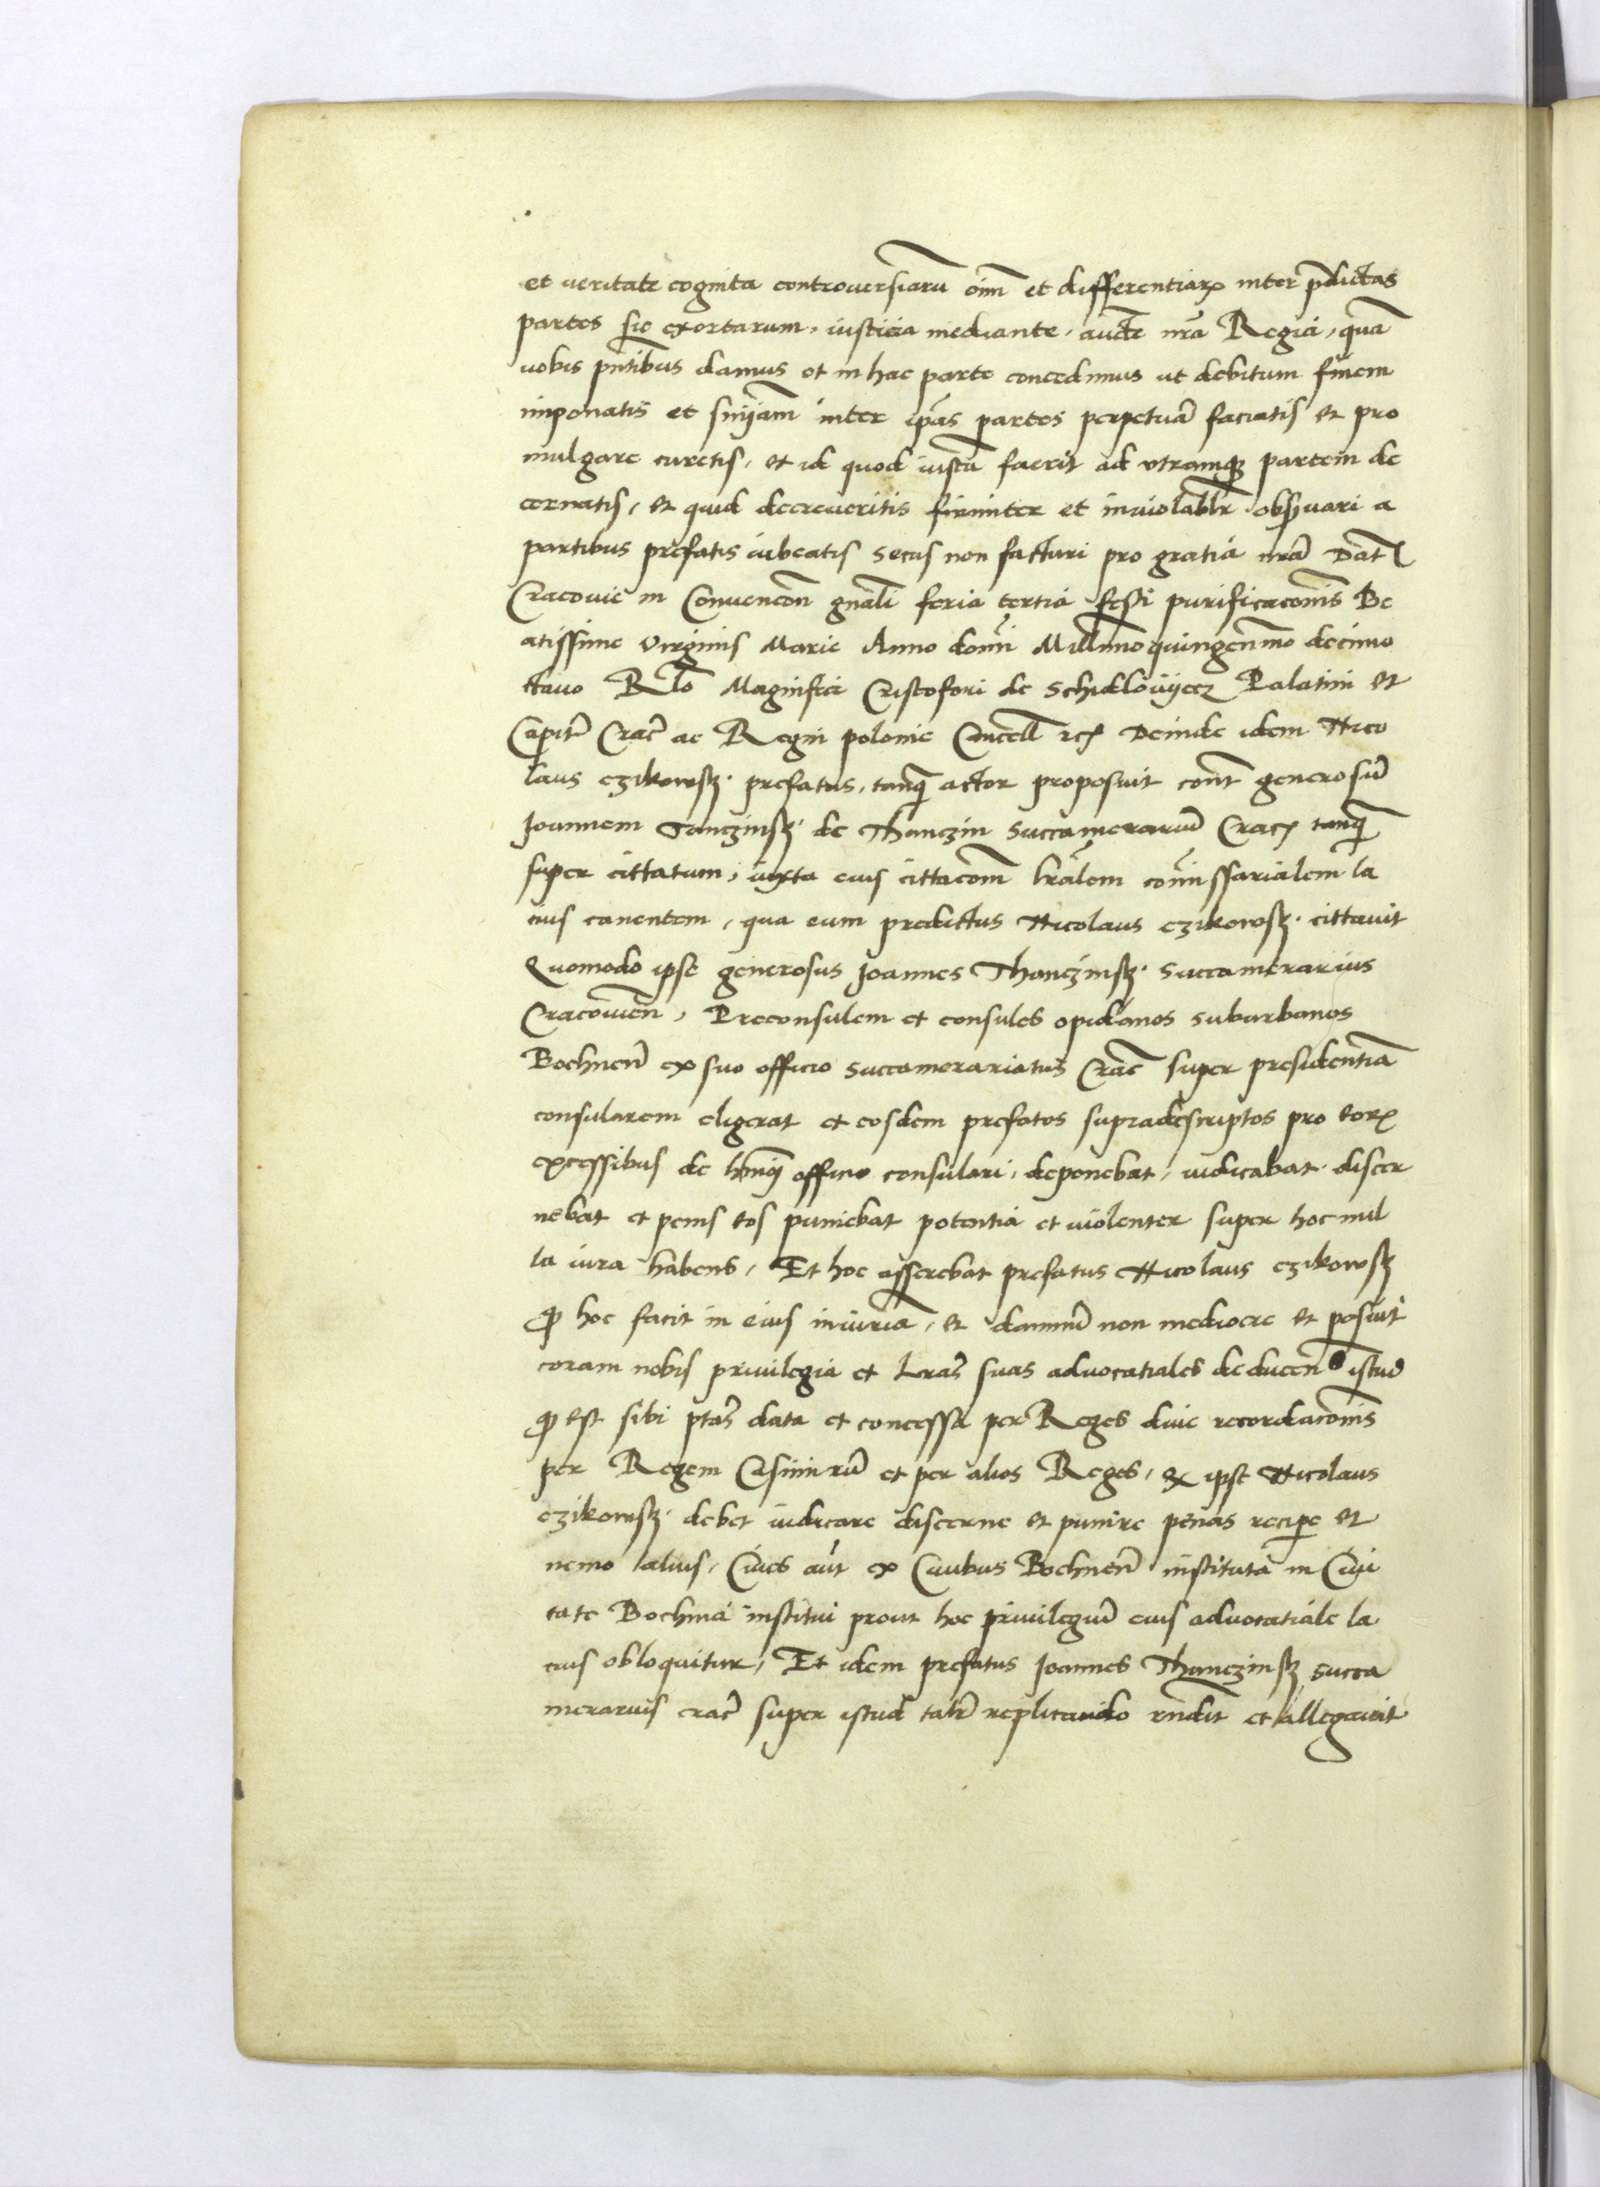 et veritate cognita controversiarū oīm et differentiarꝝ inter p̄dictas
partes sic exortarum, iusticia mediante, auctē nr̄a Regia, quā
vobis pn̄tibus damus et in hac parte concedimus ut debitum finem
imponatis et sn̄iam inter ip̄as partes perpetuā faciatis et pro
mulgare curetis, et id quod iustū fuerit ad utramqꝫ partem de
cernatis, et quid decreveritis firmiter et inviolabl̄r observari a
partibus prefatis iubeatis secus non facturi pro gratia nr̄a Dat̄
Cracovie in Convencōn gn̄ali feria tertia festi purificacōnis Be
atissime Virginis Marie Anno domī Millīmoquingen̄mo decimo
ctavo Rl̄o Magnifici Cristofori de Schidlovijecz Palatini et
Capit̄ Crac̄ ac Regni polonie Cancell̄ etcꝭ Deinde idem Nico
laus czikowsꝫ. prefatus, tanq̄ actor proposuit cont̄ generosū
Joannem Tanczinsꝫ. de Thanczin Succamerariū Cracꝭ tanq̄
super cittatum, iuxta eius cittacōm lr̄alem com̄issarialem la
cius canentem, qua eum predictus Nicolaus czikowsꝫ. cittavit
Quomodo ipse generosus Joannes Thanczinsꝫ. Succamerarius
Cracovien̄, Preconsulem et consules opidanos suburbanos
Bochnen̄ ex suo officio succamerariatus Crac̄ super presidentiā
consularem eligerat et eosdem prefatos supradescriptos pro eorꝝ
excessibus de hm̄oi officio consulari, deponebat, iudicabat discer
nebat et penis eos puniebat potentia et violenter super hoc nul
la iura habens, Et hoc asserebat prefatus Nicolaus czikowsꝫ
ꝙ hoc facit in eius iniuriā, et damnū non mediocre et posuit
coram nobis privilegia et lr̄as suas advocatiales deducen̄ istud
ꝙ est sibi ptās data et concessa per Reges dive recordacōnis
per Regem Casimirū et per alios Reges, ꝙ ipse Nicolaus
czikowsꝫ. debet iudicare discerne et punire penas recip̄e et
nemo alius, Cives aut̄ ex Civibus Bochnen̄ instituta in Civi
tate Bochnia institui prout hoc privilegiū eius advocatiale la
cius obloquitur, Et idem prefatus Joannes Thanczinsꝫ succa
merarius crac̄ super istud talr̄ replicando rn̄dit et allegavit